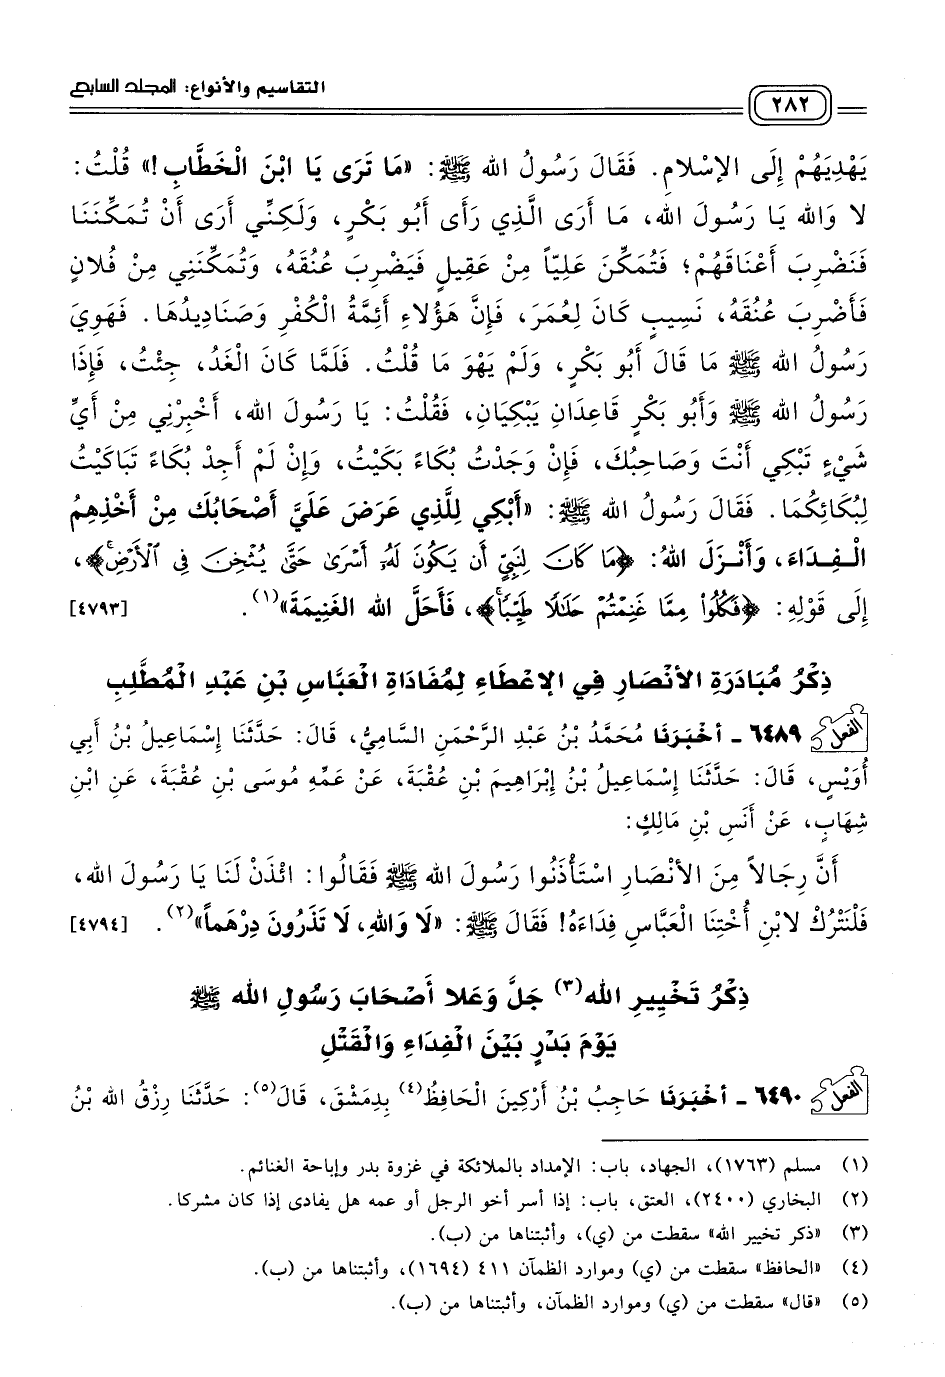 التقاسيم والأنواع: المجلد السابع
٢٨٢
يَهْدِيَهُمْ إِلَى الإِسْلَامِ. فَقَالَ رَسُولُ الله ﷺ: «مَا تَرَى يَا ابْنَ الْخَطَّابِ!» قُلْتُ:
لا وَالله يَا رَسُولَ الله، مَا أَرَى الَّذِي رَأَى أَبُو بَكْرٍ، وَلَكِنِّي أَرَى أَنْ تُمَكِّنَنَا
فَنَضْرِبَ أَعْنَاقَهُمْ؛ فَتُمَكِّنَ عَلِيّاً مِنْ عَقِيلٍ فَيَضْرِبَ عُنُقَهُ، وَتُمَكِّنَنِي مِنْ فُلانٍ
فَأَضْرِبَ عُنُقَهُ، نَسِيبٍ كَانَ لِعُمَرَ، فَإِنَّ هَؤُلاءِ أَئِمَّةُ الْكُفْرِ وَصَنَادِيدُهَا. فَهَوِيَ
رَسُولُ الله ﷺ مَا قَالَ أَبُو بَكْرٍ، وَلَمْ يَهْوَ مَا قُلْتُ. فَلَمَّا كَانَ الْغَدُ، جِئْتُ، فَإِذَا
رَسُولُ الله ﷺ وَأَبُو بَكْرٍ قَاعِدَانِ يَبْكِيَانِ، فَقُلْتُ: يَا رَسُولَ الله، أَخْبِرْنِي مِنْ أَيِّ
شَيْءٍ تَبْكِي أَنْتَ وَصَاحِبُكَ، فَإِنْ وَجَدْتُ بُكَاءً بَكَيْتُ، وَإِنْ لَمْ أَجِدْ بُكَاءً تَبَاكَيْتُ
لِبُكَائِكُمَا. فَقَالَ رَسُولُ الله ﷺ: «أَبْكِي لِلَّذِي عَرَضَ عَلَيَّ أَصْحَابُكَ مِنْ أَخْذِهِمُ
الْفِدَاءَ، وَأَنْزَلَ اللهُ: ﴿مَا كَانَ لِنَبِيٍّ أَن يَكُونَ لَهُۥٓ أَسْرَىٰ حَتَّىٰ يُثْخِنَ فِي ٱلْأَرْضِۚ﴾،
إِلَى قَوْلِهِ: ﴿فَكُلُوا۟ مِمَّا غَنِمْتُمْ حَلَـٰلًا طَيِّبًاۚ﴾، فَأَحَلَّ الله الْغَنِيمَةَ»(١). [٤٧٩٣]
ذِكْرُ مُبَادَرَةِ الأَنْصَارِ فِي الإِعْطَاءِ لِمُفَادَاةِ الْعَبَّاسِ بْنِ عَبْدِ الْمُطَّلِبِ
الفعل ٦٤٨٩ - أَخْبَرَنَا مُحَمَّدُ بْنُ عَبْدِ الرَّحْمَنِ السَّامِيُّ، قَالَ: حَدَّثَنَا إِسْمَاعِيلُ بْنُ أَبِي
أُوَيْسٍ، قَالَ: حَدَّثَنَا إِسْمَاعِيلُ بْنُ إِبْرَاهِيمَ بْنِ عُقْبَةَ، عَنْ عَمِّهِ مُوسَى بْنِ عُقْبَةَ، عَنِ ابْنِ
شِهَابٍ، عَنْ أَنَسِ بْنِ مَالِكٍ:
أَنَّ رِجَالاً مِنَ الأَنْصَارِ اسْتَأْذَنُوا رَسُولَ الله ﷺ فَقَالُوا: ائْذَنْ لَنَا يَا رَسُولَ الله،
فَلْنَتْرُكْ لابْنِ أُخْتِنَا الْعَبَّاسِ فِدَاءَهُ! فَقَالَ ﷺ: «لَا وَاللهِ، لَا تَذَرُونَ دِرْهَماً»(٢). [٤٧٩٤]
ذِكْرُ تَخْيِيرِ الله(٣) جَلَّ وَعَلا أَصْحَابَ رَسُولِ الله ﷺ
يَوْمَ بَدْرٍ بَيْنَ الْفِدَاءِ وَالْقَتْلِ
الفعل ٦٤٩٠ - أَخْبَرَنَا حَاجِبُ بْنُ أَرْكِينَ الْحَافِظُ(٤) بِدِمَشْقَ، قَالَ(٥): حَدَّثَنَا رِزْقُ الله بْنُ
(١) مسلم (١٧٦٣)، الجهاد، باب: الإمداد بالملائكة في غزوة بدر وإباحة الغنائم.
(٢) البخاري (٢٤٠٠)، العتق، باب: إذا أسر أخو الرجل أو عمه هل يفادى إذا كان مشركا.
(٣) «ذكر تخيير الله» سقطت من (ي)، وأثبتناها من (ب).
(٤) «الحافظ» سقطت من (ي) وموارد الظمآن ٤١١ (١٦٩٤)، وأثبتناها من (ب).
(٥) «قال» سقطت من (ي) وموارد الظمآن، وأثبتناها من (ب).